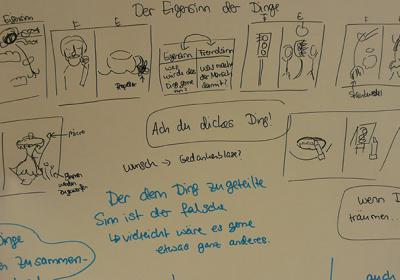 Der Eigensinn der Dinge
Eigensinn
F E
F E
F E
Eigensinn Fremdsinn
was würde das Ding gerne
was macht der Mensch damit?
Trompeter
Ach du dickes Ding!
Micro
Wunsch → Gedankenblase?
Der dem Ding zugeteilte
Sinn ist der falsche
↳ vielleicht wäre es gerne
etwas ganz anderes.
wenn D
träumen...
Dinge
zusammen-
auch